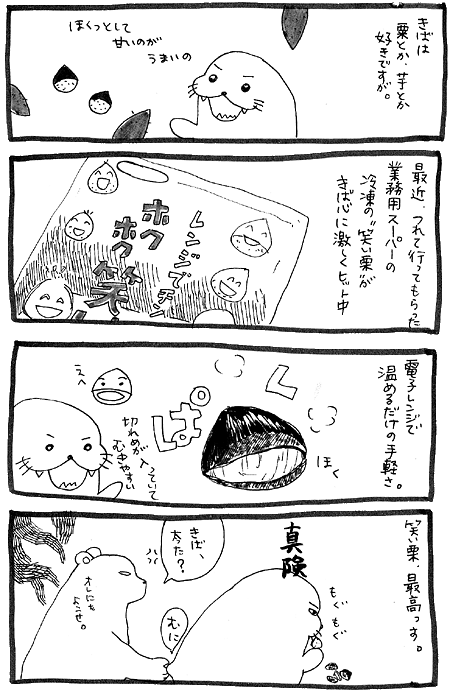 きばは
栗とか、芋とか
好きですが。
ほくっとして
甘いのが
うまいの
最近、つれて行ってもらった
業務用スーパーの
冷凍の"笑い栗"が
きば心に激しくヒット中
レンジでチン
ホク
ホク
笑
電子レンジで
温めるだけの手軽さ。
ぱ°く
ほく
えへ
切れめが入っていて
むきやすい
笑い栗、最高っす。
真険
もぐもぐ
きば、
太った?
むに
オレにも
よこせ。